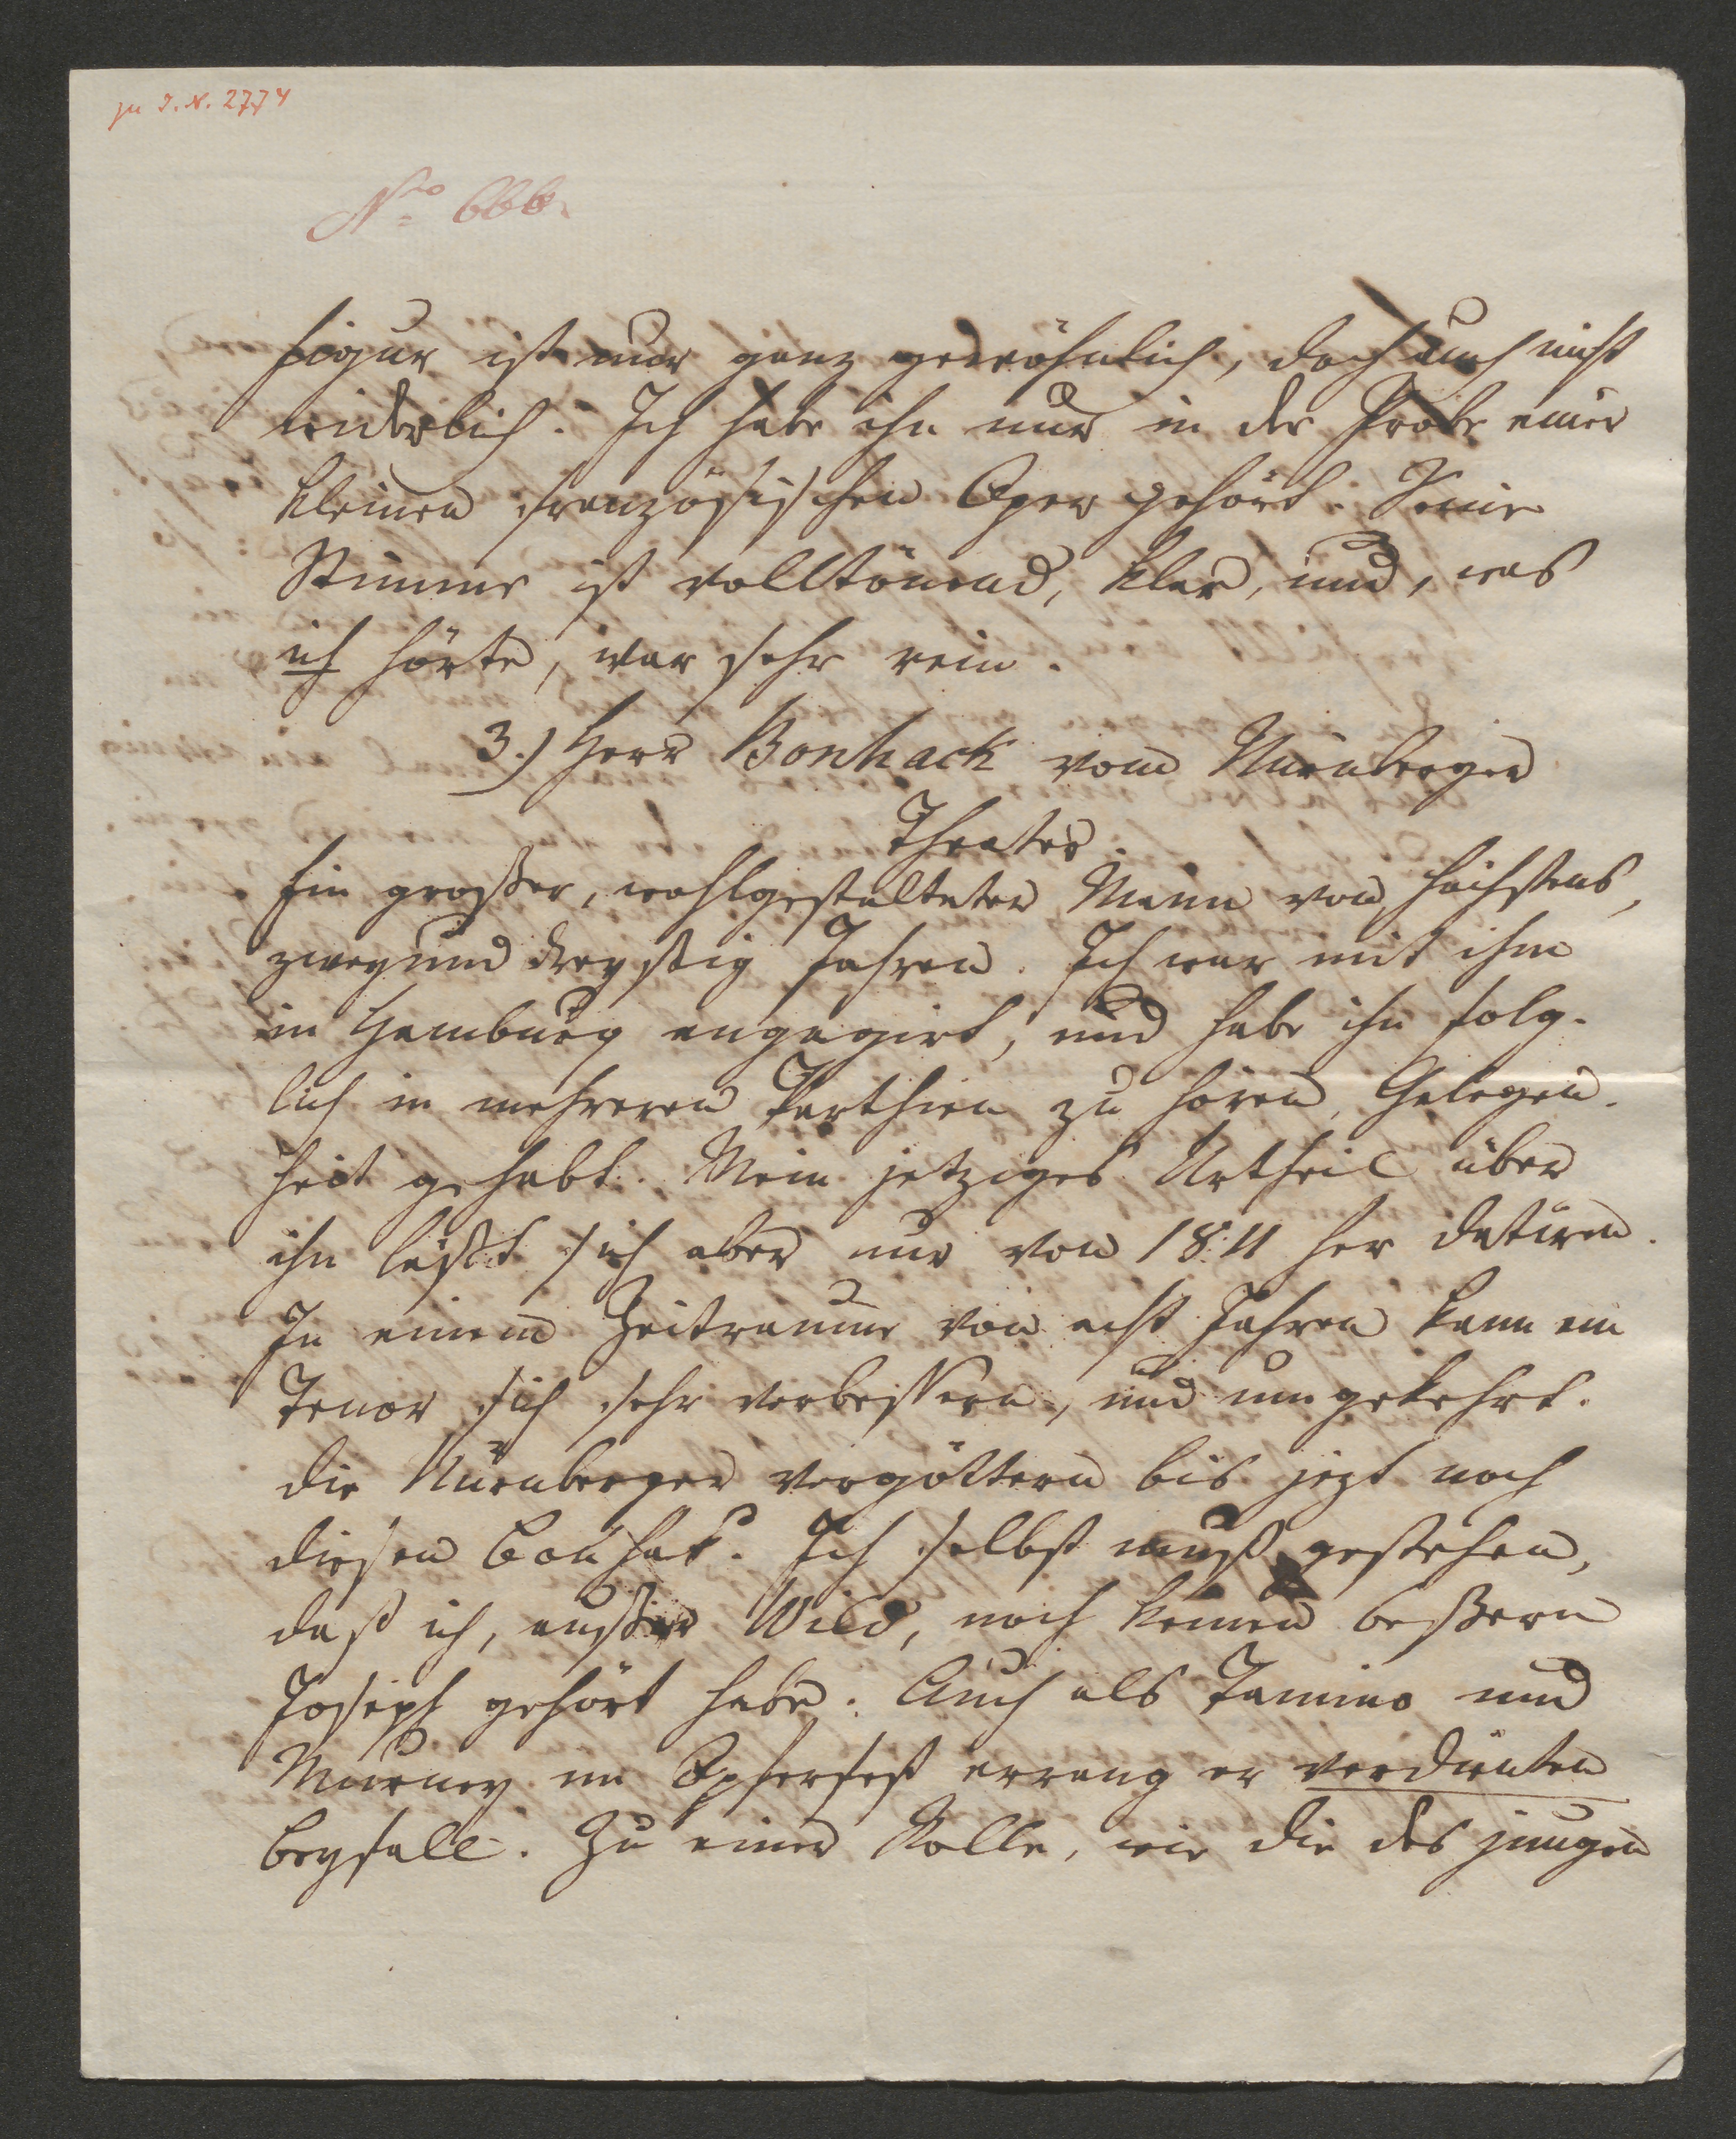 zu I.N. 2774
No 666.
Figur ist nur ganz gewöhnlich, doch auch nicht
widerlich. Ich habe ihn nur in der Probe einer
kleinen französischen Oper gehört. Seine
Stimme ist volltönend, klar, und, was
ich hörte, war sehr rein.
3.) Herr Bonhack vom Nürnberger
Theater.
Ein großer, wohlgestalteter Mann von höchstens,
zweyund dreyßig Jahren. Ich war mit ihm
in Hamburg engagirt, und habe ihn folg-
lich in mehreren Parthien zu hören, Gelegen-
heit gehabt. Mein jetziges Urtheil über
ihn läßt sich aber nur von 1811 her datiren.
In einem Zeitraume von acht Jahren kann ein
Tenor sich sehr verbessern, und umgekehrt.
die Nürnberger vergöttern bis jezt noch
diesen Bonhak. Ich selbst muß gestehen,
daß ich, außer Wild, noch keinen beßern
Joseph gehört habe. Auch als Tamino und
Murney im Opferfest errang er verdienten
Beyfall. Zu einer Rolle, wie die des jungen